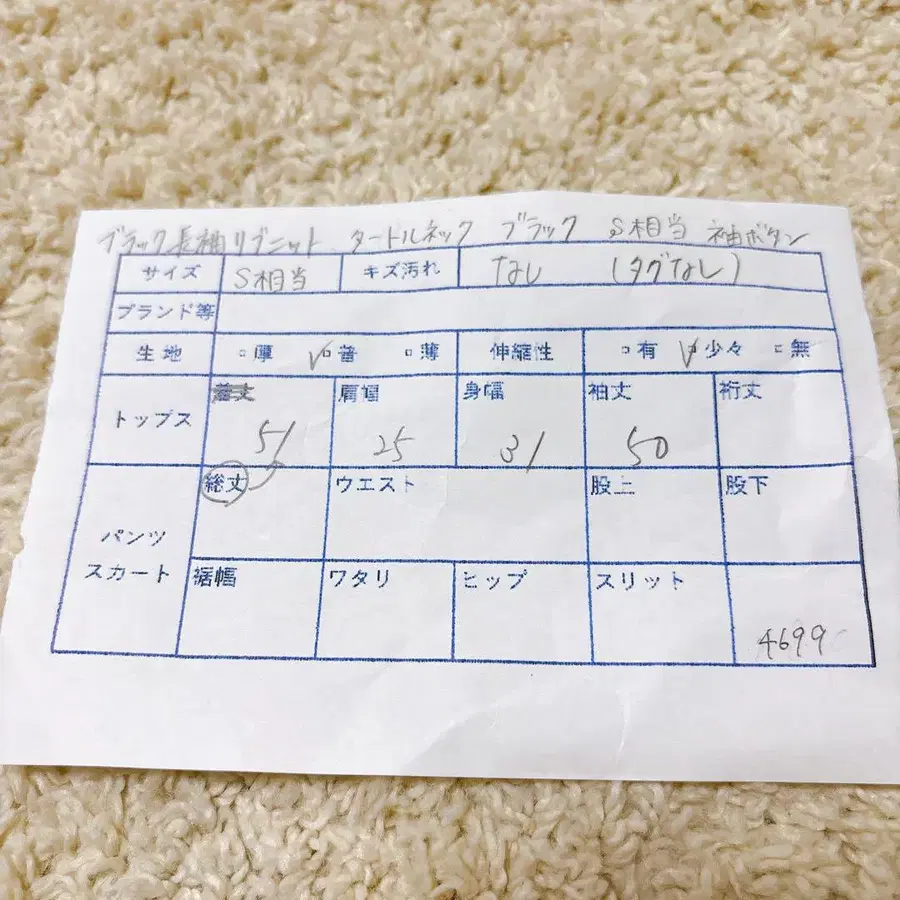 ブラック長袖リブニット タートルネック ブラック S相当 袖ボタン
サイズ S相当 キズ汚れ なし (タグなし)
ブランド等
生地 □厚 ✓□普 □薄 伸縮性 □有 ✓□少々 □無
トップス 着丈 51 肩幅 25 身幅 31 袖丈 50 裄丈
パンツ スカート
総丈 ウエスト 股上 股下
裾幅 ワタリ ヒップ スリット 4699